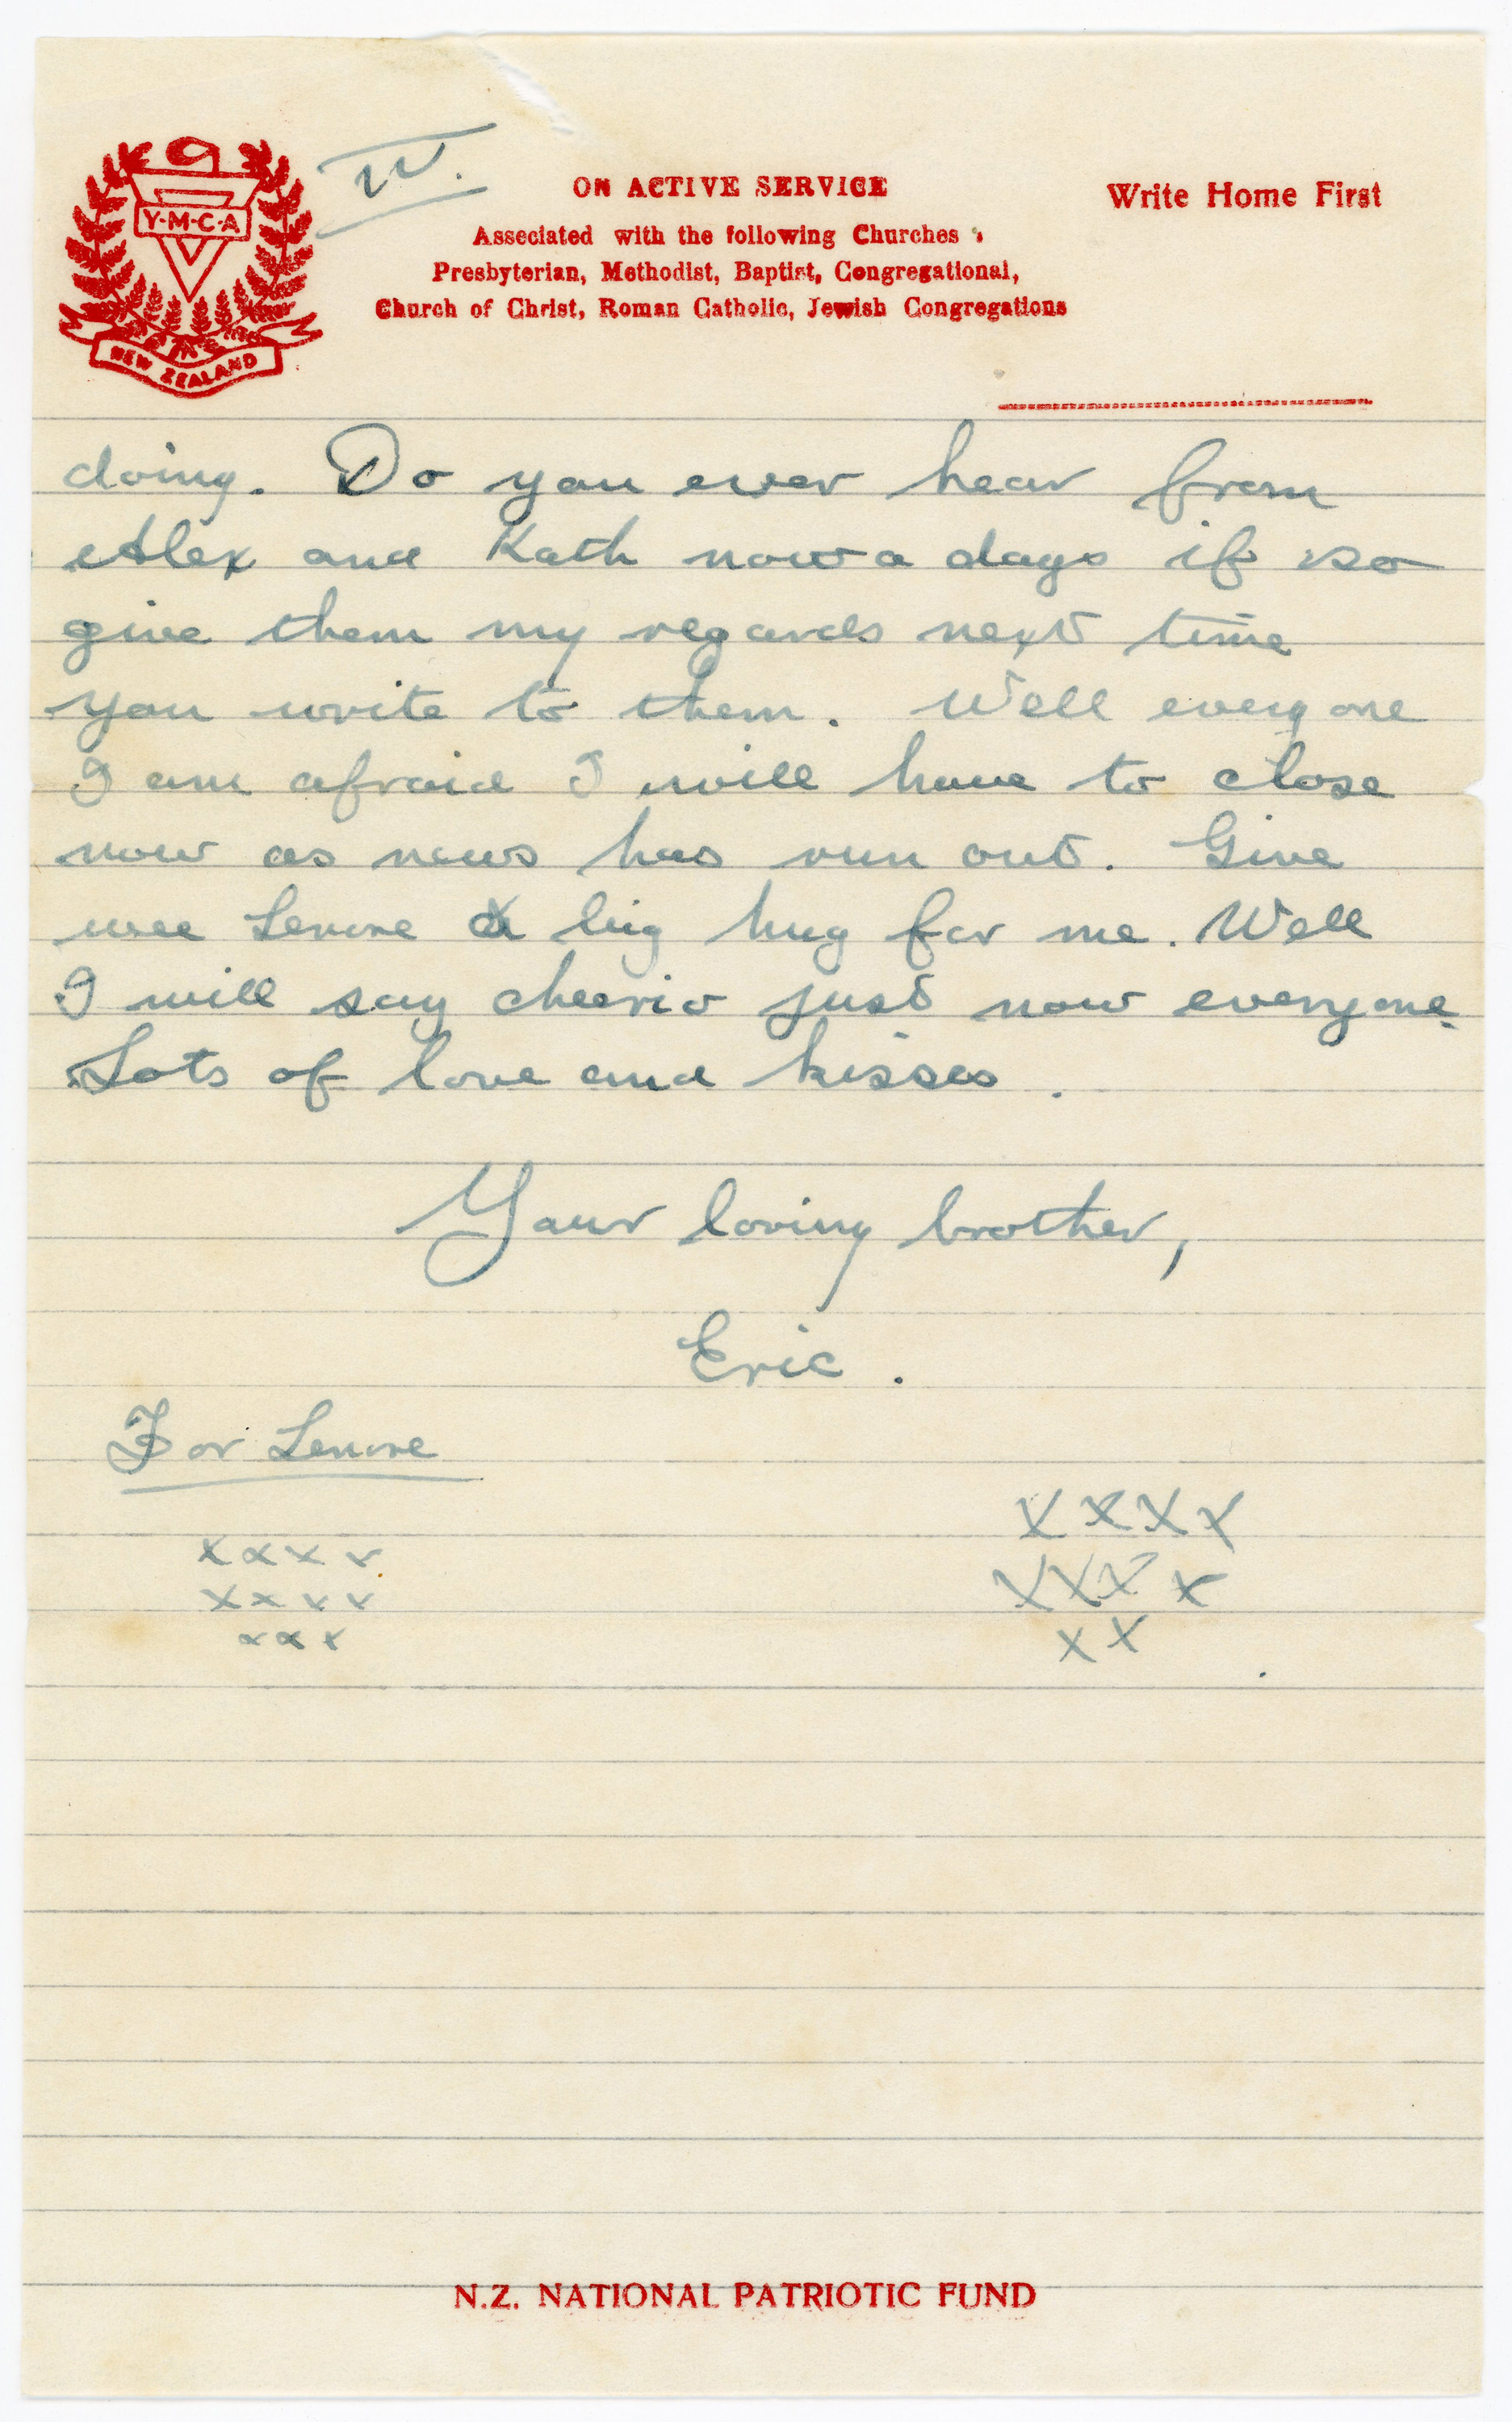 Y·M·C·A
NEW ZEALAND
IV.
ON ACTIVE SERVICE
Write Home First
Asseciated with the following Churches :
Presbyterian, Methodist, Baptist, Congregational,
Church of Christ, Roman Catholic, Jewish Congregations
doing. Do you ever hear from
Alex and Kath now a days if so
give them my regards next time
you write to them. Well everyone
I am afraid I will have to close
now as news has run out. Give
wee Lenore a big hug for me. Well
I will say cheerio just now everyone.
Lots of love and kisses.
Your loving brother,
Eric.
For Lenore
x x x x
x x x x
x x x
X X X X
X X X X
X X
N.Z. NATIONAL PATRIOTIC FUND